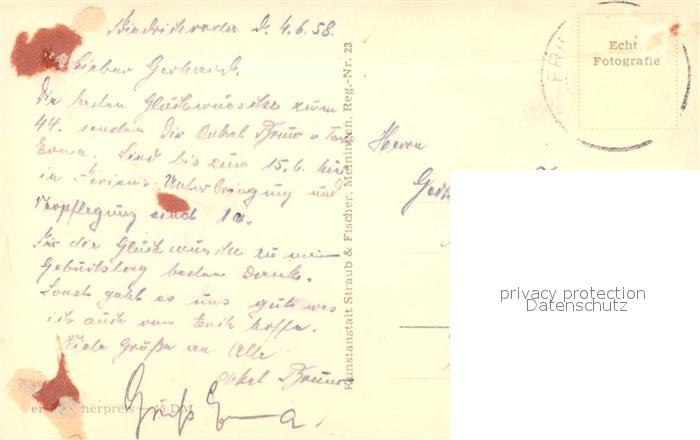 Friedrichroda d. 4.6.58.
Lieber Gerhard.
Die besten Glückwünsche zum
44. senden Dir Onkel Bruno u. Tante
Erna. Sind bis zum 15.6. hier
in Ferien. Unterbringung und
Verpflegung sind 1a.
Für die Glückwünsche zu mein
Geburtstag besten Dank.
Sonst geht es uns gut was
ich auch von Euch hoffe.
Viele Grüße an Alle
Onkel Bruno
Gruß Erna.
Kunstanstalt Straub & Fischer, Meiningen, Reg.-Nr. 23
Echt
Fotografie
FRIE
Herrn
privacy protection
Datenschutz
herpreis —.15 DM